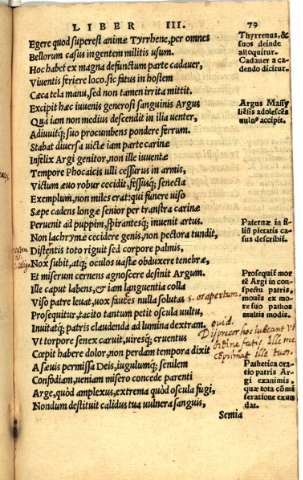 LIBER III. 79
Egere quod superest animæ Tyrrhene, per omnes
Bellorum casus ingentem militis usum.
Hoc habet ex magna defunctum parte cadauer,
Viuentis feriere loco. sic fatus in hostem
Cæca tela manu, sed non tamen irrita mittit.
Excipit hæc iuuenis generosi sanguinis Argus
Quà iam non medius descendit in ilia uenter,
Adiuuitq; suo procumbens pondere ferrum.
Stabat diuersa uictæ iam parte carinæ
Infelix Argi genitor, non ille iuuentæ
Tempore Phocaicis ulli cessurus in armis,
Victum æuo robur cecidit, fessusq; senecta
Exemplum, non miles erat: qui funere uiso
Sæpe cadens longæ senior per transtra carinæ
Peruenit ad puppim, spirantesq; inuenit artus.
Non lachrymæ cecidere genis, non pectora tundit,
Distentis toto riguit sed corpore palmis,
Nox subit, atq; oculos uastæ obduxere tenebræ,
Et miserum cernens agnoscere desinit Argum.
Ille caput labens, & iam languentia colla
Viso patre leuat, uox fauces nulla solutas
Prosequitur, tacito tantum petit oscula uultu,
Inuitatq; patris claudenda ad lumina dextram.
Vt torpore senex caruit, uiresq; cruentus
Cœpit habere dolor, non perdam tempora dixit
A sæuis permissa Deis, iugulumq; senilem
Confodiam, ueniam misero concede parenti
Arge, quòd amplexus, extrema quòd oscula fugi,
Nondum destituit calidus tua uulnera sanguis,
Semia
Thyrrenus, &
suos deinde
alloquitur.
Cadauer a ca-
dendo dicitur.
Argus Massy
liēsis adolescēs
uulnᵒ accipit.
Paternæ in fi-
lij pietatis ca-
sus describit.
Prosequit mor
tē Argi in con-
spectu patris,
mouēs ex mo-
re suo pathos
magno modo.
Pathetica ora-
tio patris Ar-
gi exanimis,
quæ tota cōmi
seratione exun
dat.